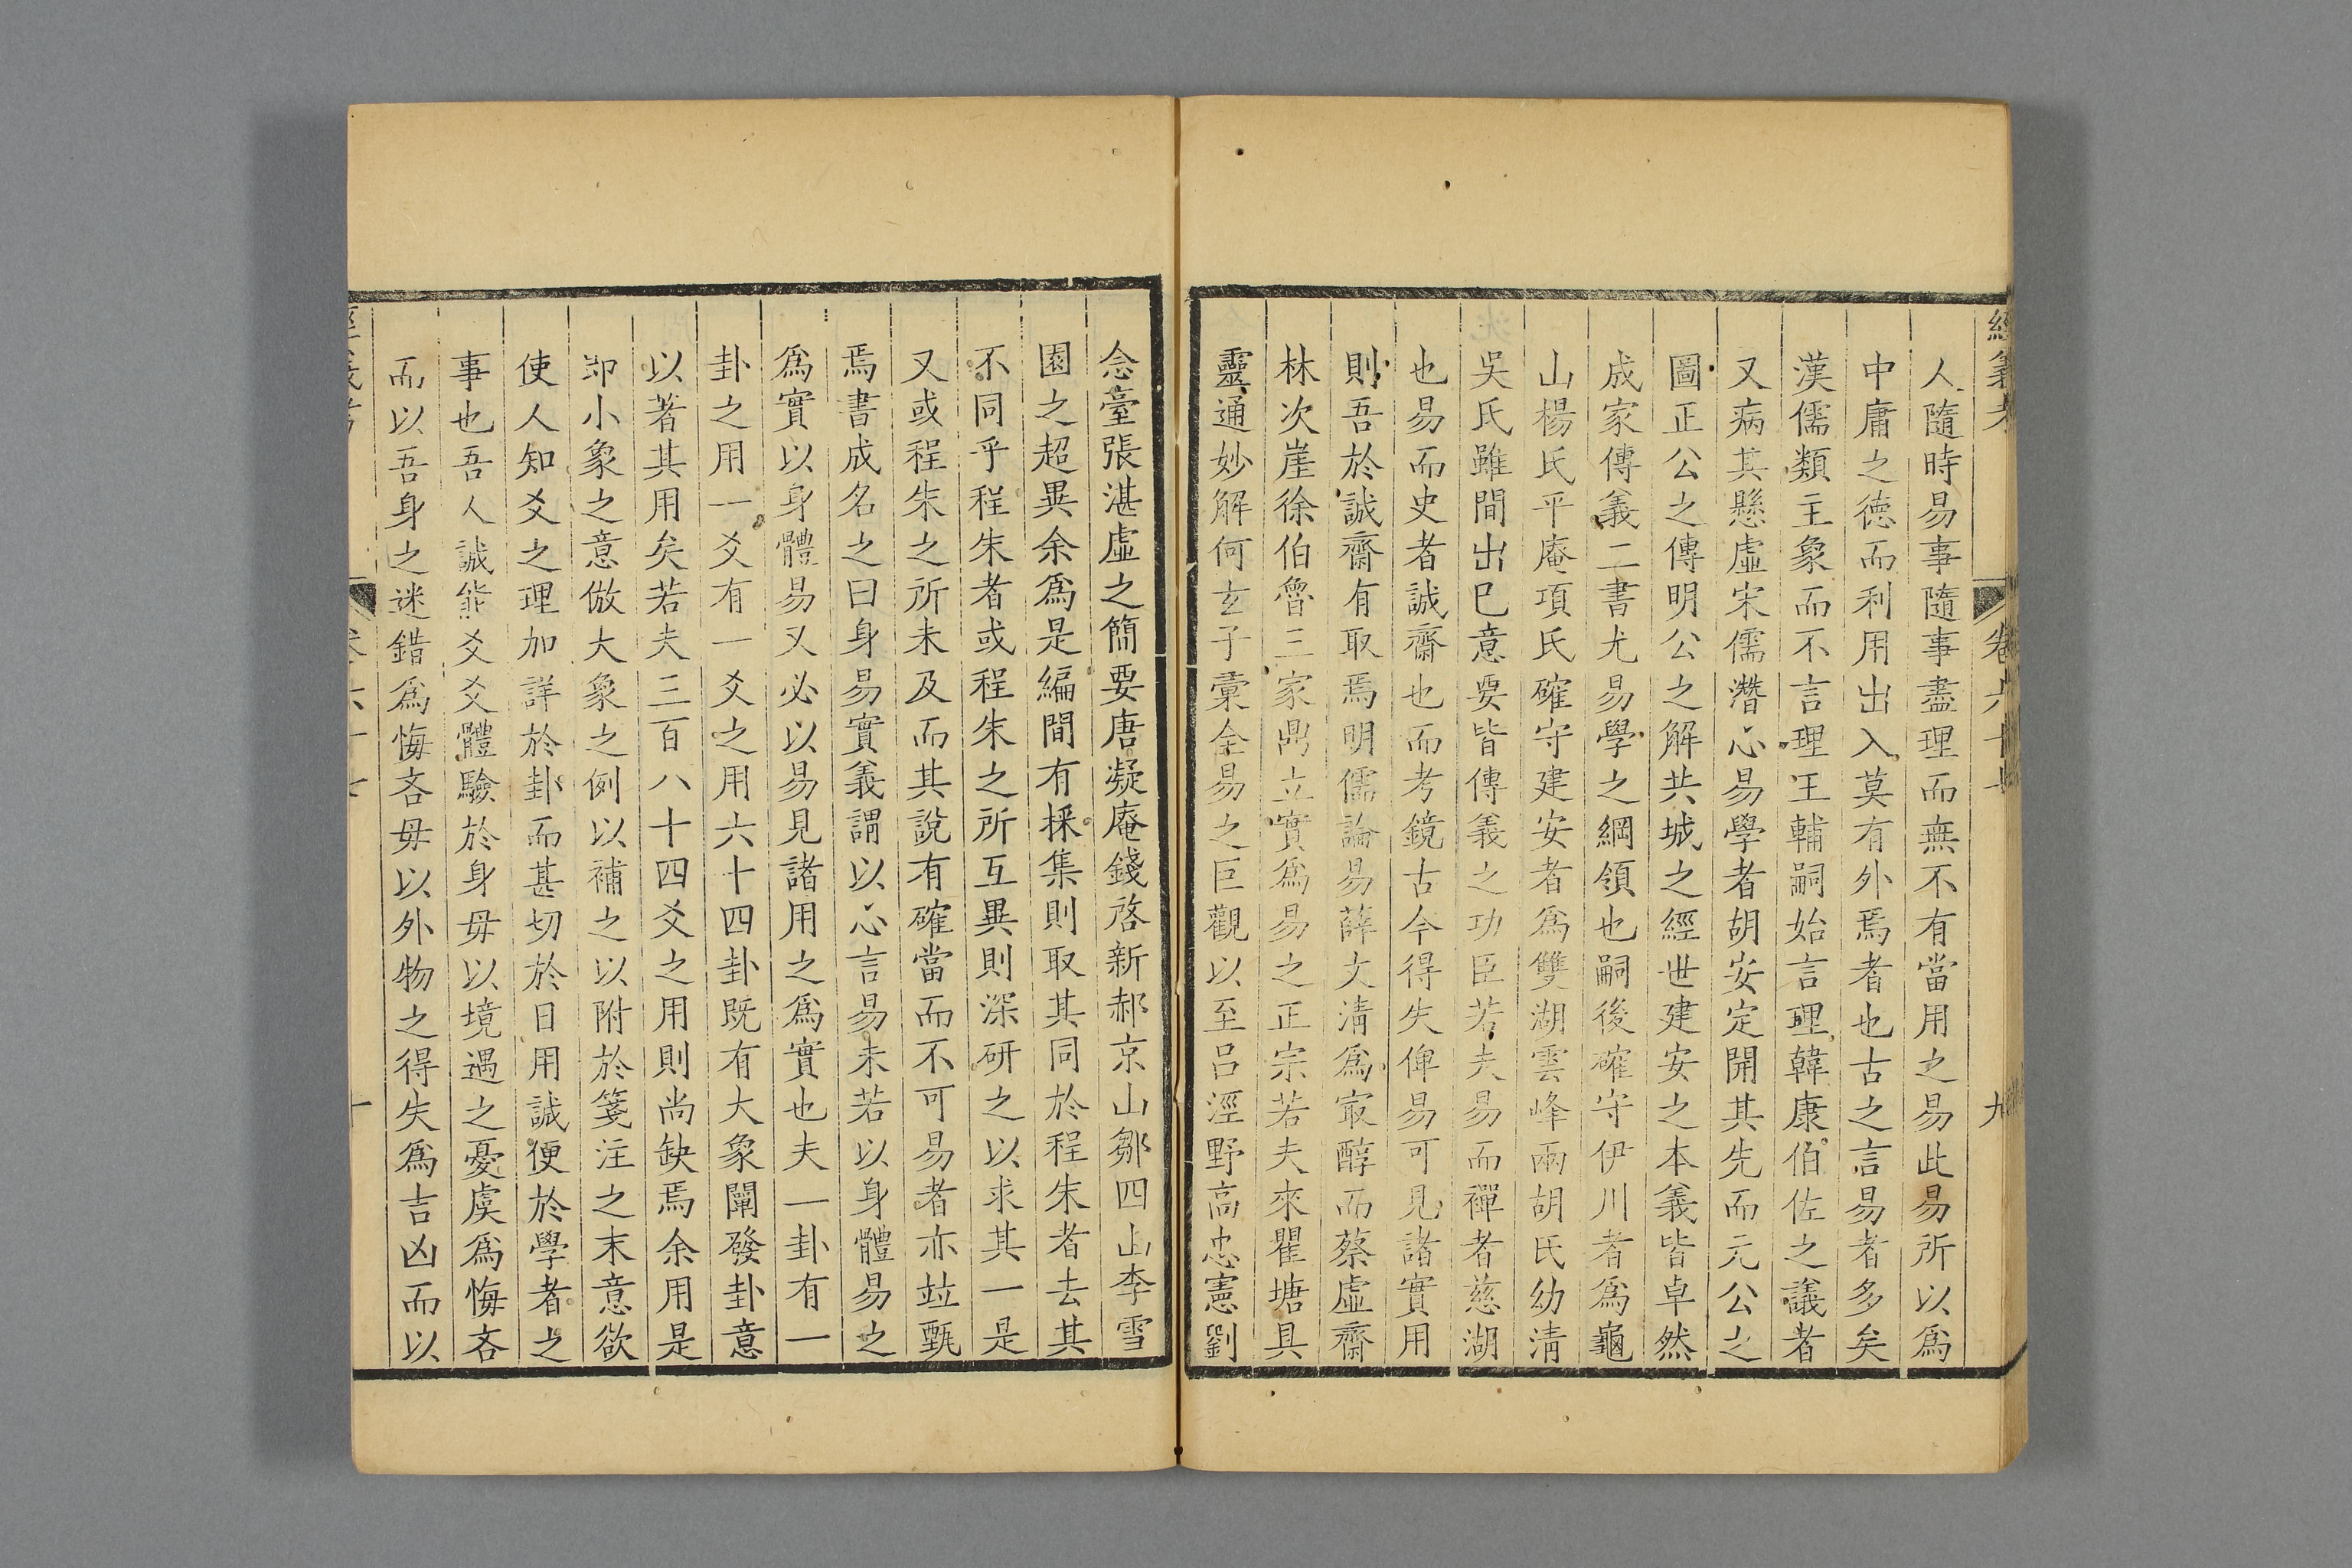 經義考 卷六十七 九
人隨時易事隨事盡理而無不有當用之易此易所以爲
中庸之德而利用出入莫有外焉者也古之言易者多矣
漢儒類主象而不言理王輔嗣始言理韓康伯佐之議者
又病其懸虛宋儒潛心易學者胡安定開其先而元公之
圖正公之傳明公之解共城之經世建安之本義皆卓然
成家傳義二書尤易學之綱領也嗣後確守伊川者爲龜
山楊氏平庵項氏確守建安者爲雙湖雲峰兩胡氏幼清
吳氏雖間出巳意要皆傳義之功臣若夫易而禪者慈湖
也易而史者誠齋也而考鏡古今得失俾易可見諸實用
則吾於誠齋有取焉明儒論易薛文清爲㝡醇而蔡虛齋
林次崖徐伯魯三家鼎立實爲易之正宗若夫來瞿塘具
靈通妙解何玄子彚全易之巨觀以至呂涇野高忠憲劉
念臺張湛虛之簡要唐凝庵錢啓新郝京山鄒四山李雪
園之超異余爲是編間有採集則取其同於程朱者去其
不同乎程朱者或程朱之所互異則深研之以求其一是
又或程朱之所未及而其說有確當而不可易者亦竝甄
焉書成名之曰身易實義謂以心言易未若以身體易之
爲實以身體易又必以易見諸用之爲實也夫一卦有一
卦之用一爻有一爻之用六十四卦旣有大象闡發卦意
以著其用矣若夫三百八十四爻之用則尚缺焉余用是
卽小象之意倣大象之例以補之以附於箋注之末意欲
使人知爻之理加詳於卦而甚切於日用誠便於學者之
事也吾人誠能爻爻體驗於身毋以境遇之憂虞爲悔吝
而以吾身之迷錯爲悔吝毋以外物之得失爲吉凶而以